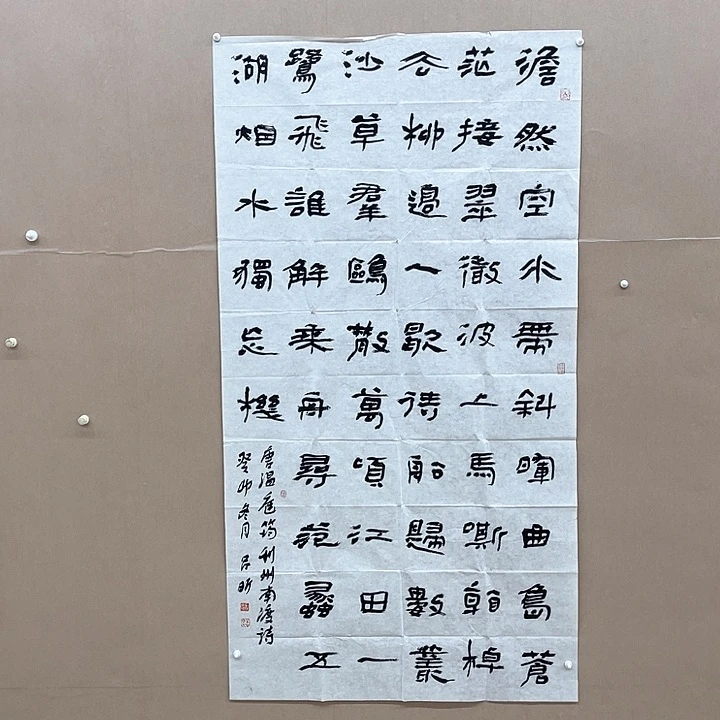 澹然空水帶斜暉曲島蒼
茫接翠微波上馬嘶看棹
去柳邊人歇待船歸數叢
沙草羣鷗散萬頃江田一
鷺飛誰解乘舟尋范蠡五
湖烟水獨忘機
唐温庭筠利州南渡詩
癸卯冬月 吕昕